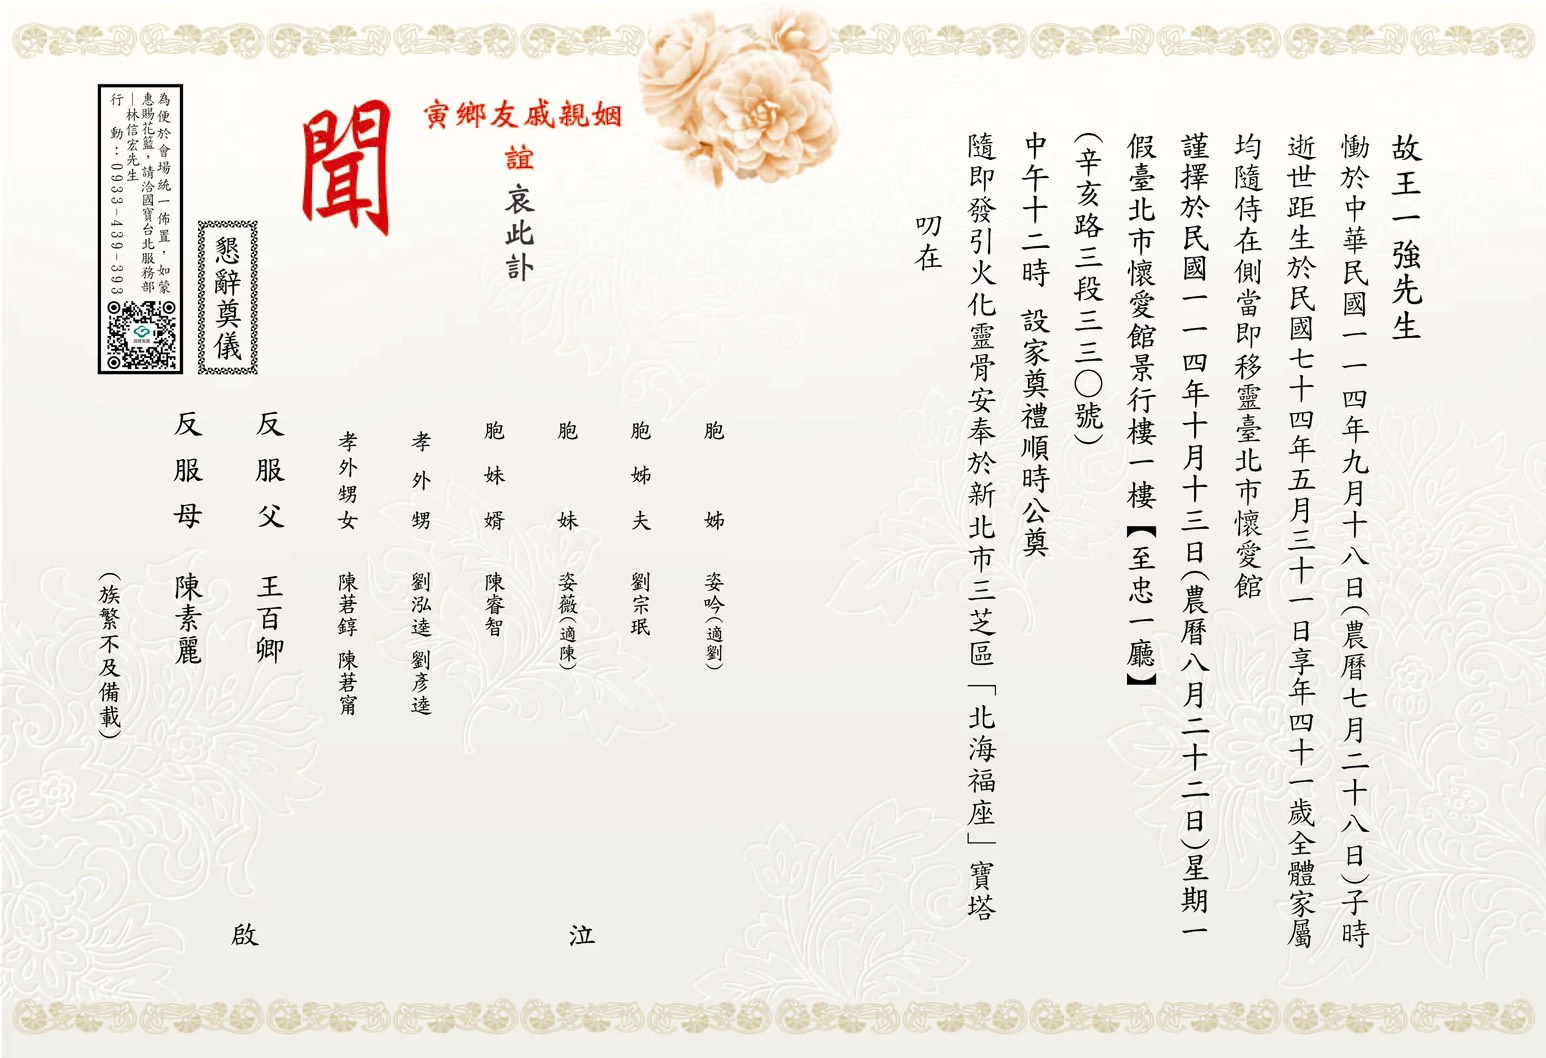 故王一強先生
慟於中華民國一一四年九月十八日(農曆七月二十八日)子時
逝世距生於民國七十四年五月三十一日享年四十一歲全體家屬
均隨侍在側當即移靈臺北市懷愛館
謹擇於民國一一四年十月十三日(農曆八月二十二日)星期一
假臺北市懷愛館景行樓一樓【至忠一廳】
(辛亥路三段三三〇號)
中午十二時 設家奠禮順時公奠
隨即發引火化靈骨安奉於新北市三芝區「北海福座」寶塔
叨在
姻親戚友鄉寅
誼 哀此訃
聞
胞姊 姿吟(適劉)
胞姊夫 劉宗珉
胞妹 姿薇(適陳)
胞妹婿 陳睿智
孝外甥 劉泓逵 劉彥逵
孝外甥女 陳莙錞 陳莙甯
泣
反服父 王百卿
反服母 陳素麗
啟
(族繁不及備載)
懇辭奠儀
為便於會場統一佈置，如蒙
惠賜花籃，請洽國寶台北服務部
—林信宏先生
行動：0933-439-393